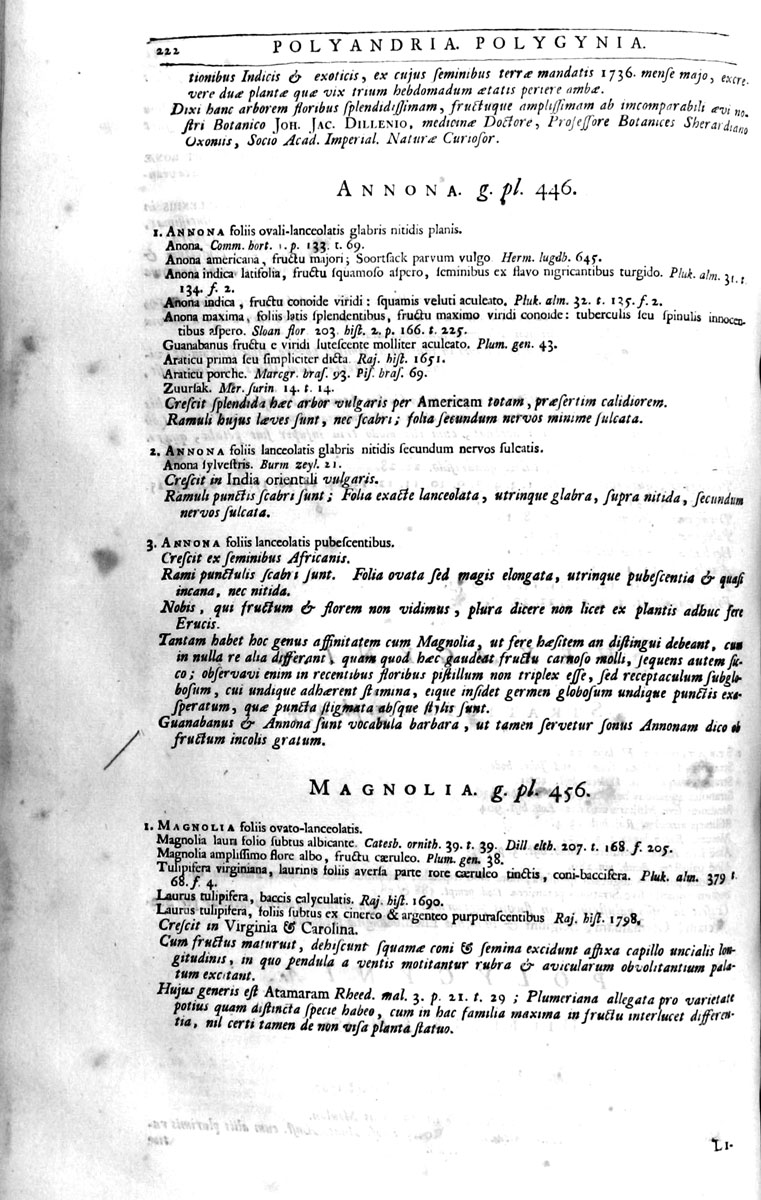 222 POLYANDRIA. POLYGYNIA.
tionibus Indicis & exoticis, ex cujus ſeminibus terræ mandatis 1736. menſe majo, excre-
vere duæ plantæ quæ vix trium hebdomadum ætatis periere ambæ.
Dixi hanc arborem floribus ſplendidiſſimam, fructuque ampliſſimam ab incomparabili ævi no-
ſtri Botanico JOH. JAC. DILLENIO, medicinæ Doctore, Profeſſore Botanices Sherardiano
Oxoniis, Socio Acad. Imperial. Naturæ Curioſor.
ANNONA. g. pl. 446.
1. ANNONA foliis ovali-lanceolatis glabris nitidis planis.
Anona. Comm. hort. 1. p. 133. t. 69.
Anona americana, fructu majori; Soortſack parvum vulgo Herm. lugdb. 645.
Anona indica latifolia, fructu ſquamoſo aſpero, ſeminibus ex flavo nigricantibus turgido. Pluk. alm. 31. t.
134. f. 2.
Anona indica, fructu conoide viridi: ſquamis veluti aculeato. Pluk. alm. 32. t. 135. f. 2.
Anona maxima, foliis latis ſplendentibus, fructu maximo viridi conoide: tuberculis ſeu ſpinulis innocen-
tibus aſpero. Sloan flor 203. hiſt. 2. p. 166. t. 225.
Guanabanus fructu e viridi luteſcente molliter aculeato. Plum. gen. 43.
Araticu prima ſeu ſimpliciter dicta. Raj. hiſt. 1651.
Araticu porche. Marcgr. braſ. 93. Piſ. braſ. 69.
Zuurſak. Mer. ſurin 14. t. 14.
Creſcit ſplendida hæc arbor vulgaris per Americam totam, præſertim calidiorem.
Ramuli hujus læves ſunt, nec ſcabri; folia ſecundum nervos minime ſulcata.
2. ANNONA foliis lanceolatis glabris nitidis ſecundum nervos ſulcatis.
Anona ſylveſtris. Burm zeyl. 21.
Creſcit in India orientali vulgaris.
Ramuli punctis ſcabri ſunt; Folia exacte lanceolata, utrinque glabra, ſupra nitida, ſecundum
nervos ſulcata.
3. ANNONA foliis lanceolatis pubeſcentibus.
Creſcit ex ſeminibus Africanis.
Rami punctulis ſcabri ſunt. Folia ovata ſed magis elongata, utrinque pubeſcentia & quaſi
incana, nec nitida.
Nobis, qui fructum & florem non vidimus, plura dicere non licet ex plantis adhuc fere
Erucis.
Tantam habet hoc genus affinitatem cum Magnolia, ut fere hæſitem an diſtingui debeant, cum
in nulla re alia differant, quam quod hæc gaudeat fructu carnoſo molli, ſequens autem ſic-
co; obſervavi enim in recentibus floribus piſtillum non triplex eſſe, ſed receptaculum ſubglo-
boſum, cui undique adhærent ſtamina, eique inſidet germen globoſum undique punctis exa-
ſperatum, quæ puncta ſtigmata absque ſtylis ſunt.
Guanabanus & Annona ſunt vocabula barbara, ut tamen ſervetur ſonus Annonam dico ob
fructum incolis gratum.
MAGNOLIA. g. pl. 456.
1. MAGNOLIA foliis ovato-lanceolatis.
Magnolia lauri folio ſubtus albicante. Catesb. ornith. 39. t. 39. Dill elth. 207. t. 168. f. 205.
Magnolia ampliſſimo flore albo, fructu cæruleo. Plum. gen. 38.
Tulipifera virginiana, laurinis foliis averſa parte rore cæruleo tinctis, coni-baccifera. Pluk. alm. 379 t.
68. f. 4.
Laurus tulipifera, baccis calyculatis. Raj. hiſt. 1690.
Laurus tulipifera, foliis ſubtus ex cinereo & argenteo purpuraſcentibus Raj. hiſt. 1798.
Creſcit in Virginia & Carolina.
Cum fructus maturuit, dehiſcunt ſquamæ coni & ſemina excidunt affixa capillo uncialis lon-
gitudinis, in quo pendula a ventis motitantur rubra & avicularum obvolitantium pala-
tum excitant.
Hujus generis eſt Atamaram Rheed. mal. 3. p. 21. t. 29; Plumeriana allegata pro varietate
potius quam diſtincta ſpecie habeo, cum in hac familia maxima in fructu interlucet differen-
tia, nil certi tamen de non viſa planta ſtatuo.
LI-